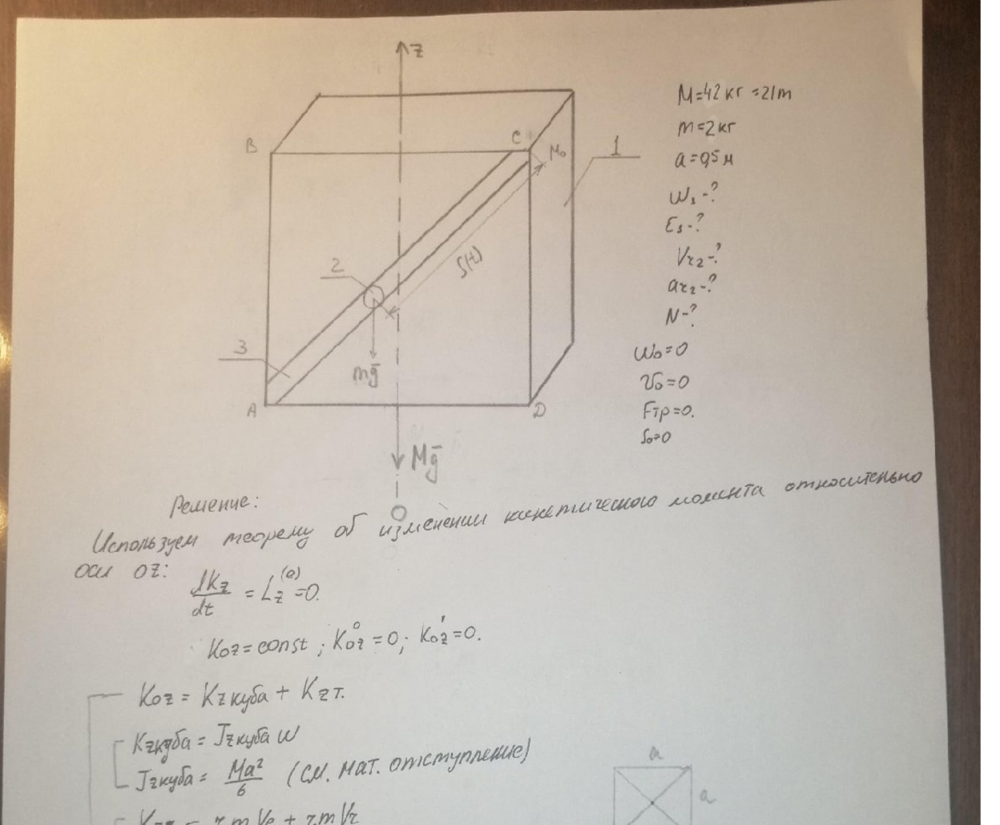 z
B
C
M₀
1
M=42кг=21m
m=2кг
a=0,5м
ω₁-?
ε₁-?
Vr₂-?
ar₂-?
N-?
ω₀=0
v₀=0
Fтр=0.
S₀=0
2
S(t)
3
mḡ
A
D
Mḡ
O
Решение:
Используем теорему об изменении кинетического момента относительно
оси oz:
dKz/dt = Lz(e)=0.
Koz=const ; Koz⁰=0; Koz'=0.
Koz = Kz куба + Kzт.
Kz куба = Jz куба ω
Jz куба = Ma²/6 (см. мат. отступление)
a
a